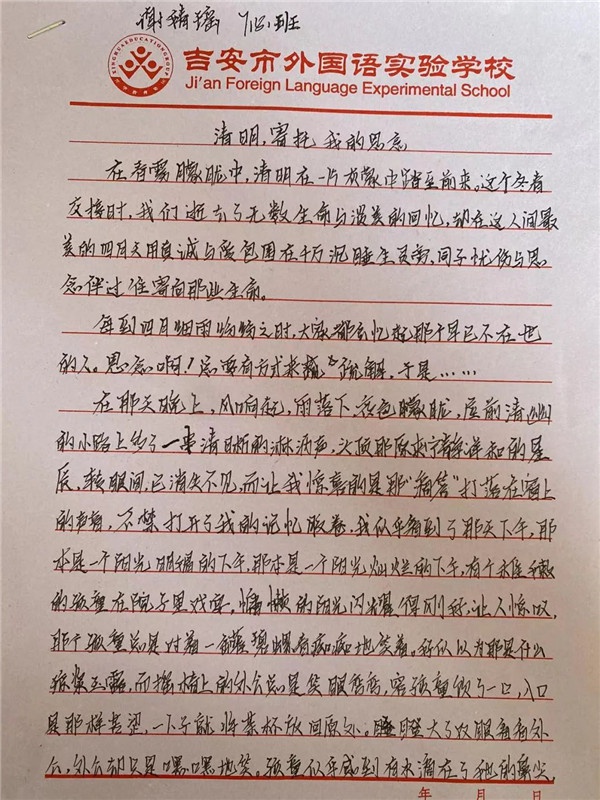 谢婧瑶 七(2)班
吉安市外国语实验学校
Ji'an Foreign Language Experimental School
清明,寄托我的思念
在春雾朦胧中,清明在一片灰蒙中踏至前来。这个冬春
交接时,我们逝去了无数生命与淡美的回忆,却在这人间最
美的四月天用真诚与爱包围在千万沉睡生灵旁、同予忧伤与思
念伴过往寄向那些生命。
每到四月烟雨物物之时,大家都有忆起那个早已不在世
的人。思念啊!总要有方式来疏解,于是……
在那天晚上,风响起,雨落下,夜色朦胧,屋前清幽
的小路上多了一串清晰的淋漓声,头顶那原来宁静祥和的星
辰,转眼间,已消失不见,而让我惊喜的是那“稍笞”打落在窗上
的声音,不禁打开了我的记忆胶卷,我似乎看到了那天下午,那
本是一个阳光明媚的下午,那本是一个阳光灿烂的下午,有个稚嫩
的孩童在院子里戏耍,慵懒的阳光闪耀得刚好,让人惊叹,
那个孩童总是对着一 痴痴地笑着。好似以为那是什么
琼浆玉露,而摇椅上的外公总是笑眼 ,容孩童饮了一口,入口
是那样苦涩,一下子就将茶杯放回原处,瞪大了双眼看着外
公,外公却只是嘿嘿地笑。孩童似乎感到有水滴在了他的鼻尖,
年 月 日